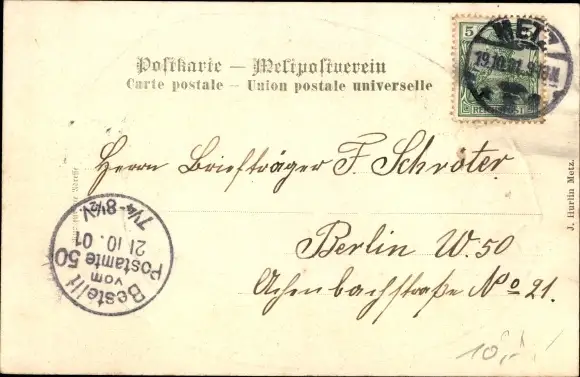 Postkarte – Weltpostverein
Carte postale – Union postale universelle
5
METZ
19.10.01.
Herrn Briefträger F. Schröter
Berlin W. 50
Achenbachstraße No 21.
Bestellt
vom
Postamte 50
21.10.01
7¼-8½V.
J. Hurlin Metz.
10,-